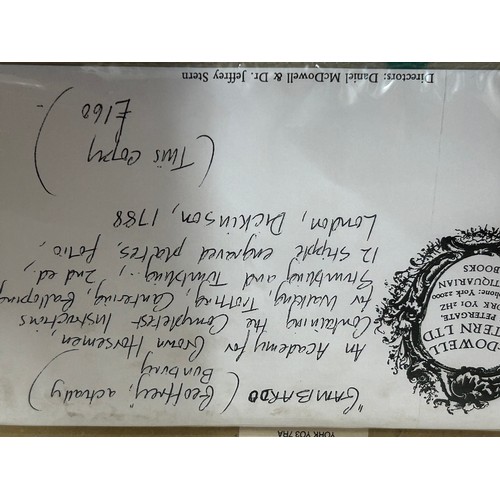 YORK YO3 7RA
DOWELL
ERN LTD
PETERGATE,
ORK YO1 2HZ
phone: York 22000
TIQUARIAN
BOOKS
"GAMBARDO (Geoffrey, actually)
Bunbury
An Academy for Grown Horsemen
Containing the Completest Instructions
for Walking, Trotting, Cantering, Galloping
Stumbling and Tumbling...", 2nd ed.,
12 stipple engraved plates, folio,
London, Dickinson, 1788
(This copy
£160)
Directors: Daniel McDowell & Dr. Jeffrey Stern